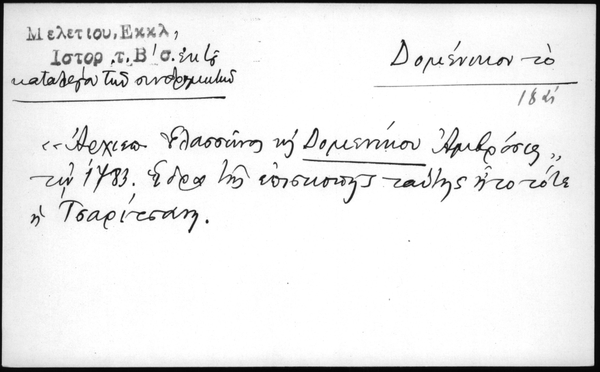 Μελετίου, Εκκλ,
Ιστορ. τ. Β´ σ. εκ τῶ
καταλόγου τῶν συνδρομητῶν
Δομένικον τὸ
«Ἀρχιεπ Ἐλασσῶνος κὴ Δομενίκου Ἀμβρόσιος»
τῷ 1783. Ἕδρα τῆς ἐπισκοπῆς ταύτης ἦτο τότε
ἡ Τσαρίτσανη.